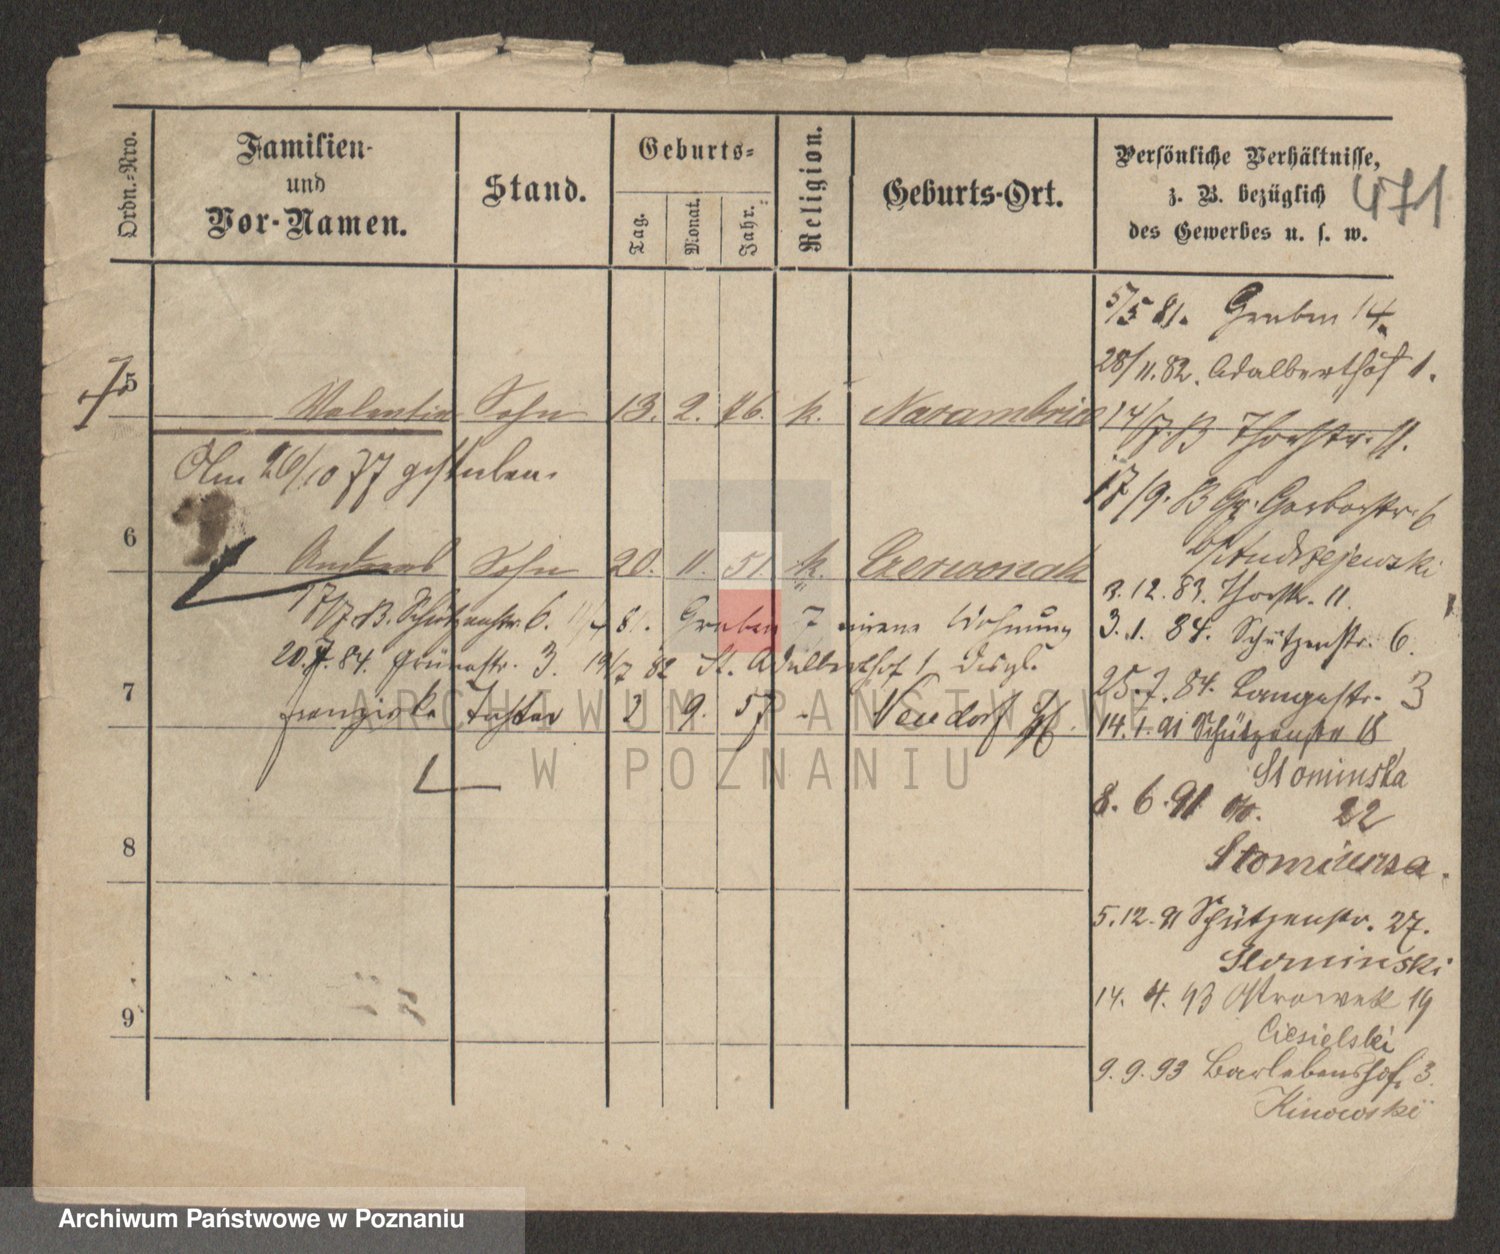 Ordn.-Nro.
Familien-
und
Vor-Namen.
Stand.
Geburts-
Tag.
Monat.
Jahr.
Religion.
Geburts-Ort.
Persönliche Verhältnisse,
z. B. bezüglich
des Gewerbes u. s. w.
471
5/5 81. Graben 14.
28/11.82. Adalberthof 1.
5
Valentin Sohn 13. 2. 76. k. Naramowice
14/7 83 Thorstr. 11.
Am 26/10 77 gestorben.
17/9. 83 Gr. Gerberstr. 6
b/ Andrzejewski
6
Andreas Sohn 20. 11. 51. k. Czerwonak
3.12.83. Thorstr. 11.
17/7. 83. Schützenstr. 6. 81. Graben 7 eigene Wohnung
3.1. 84. Schützenstr. 6.
20.7.84. Grünestr. 3. 19/7 82 St. Adalberthof 1
25.7.84. Langestr. 3
7
Franziska Tochter 2 9. 57 - Neudorf
14.1.91 Schützenstr 18
Slominska
8. 6. 91 do. 22
Slominska.
8
5.12.91 Schützenstr. 27.
Slominski
14. 4. 93 Ostrowek 19
Ciesielski
9
9.9.93 Barlebenshof. 3.
Kinowski
ARCHIWUM PAŃSTWOWE
W POZNANIU
Archiwum Państwowe w Poznaniu